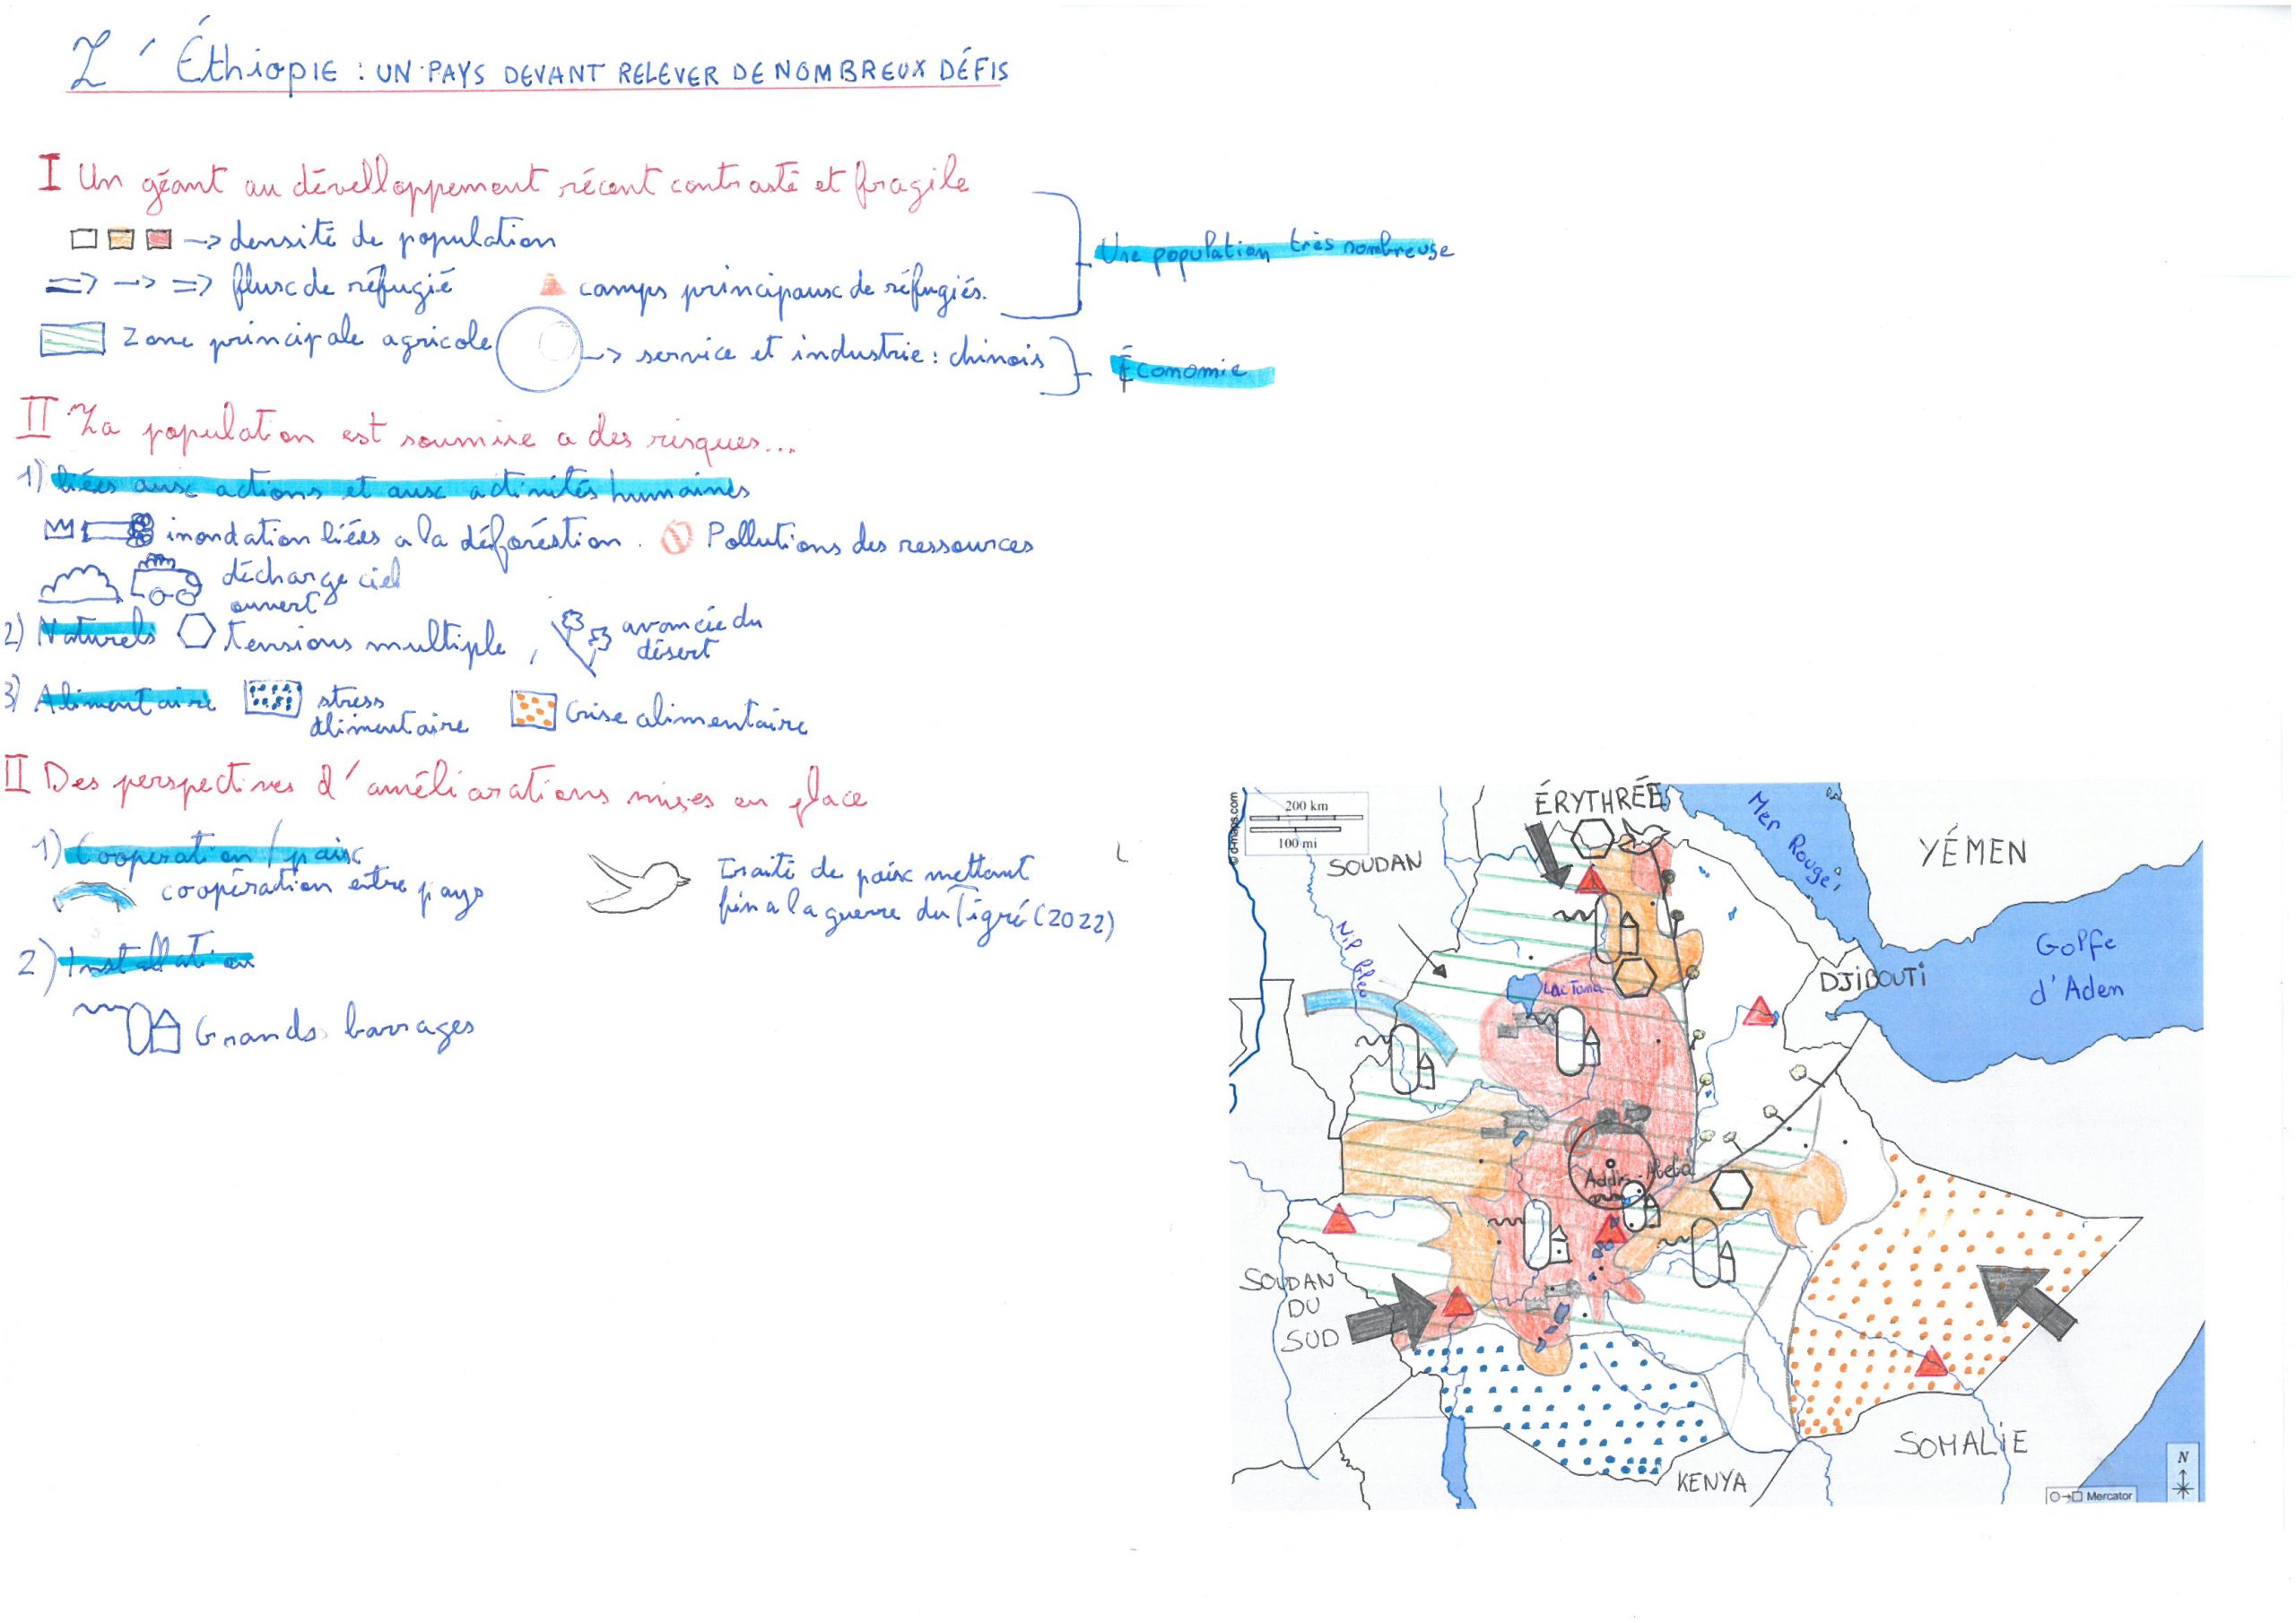 L'Éthiopie : UN PAYS DEVANT RELEVER DE NOMBREUX DÉFIS
I Un géant au dévelloppement récent contrasté et fragile
-> densité de population
Une population très nombreuse
=> -> => flux de réfugié
camps principaux de réfugiés.
Zone principale agricole
-> service et industrie : chinois
Économie
II La population est soumise a des risques...
1) liées aux actions et aux activités humaines
inondation liées a la déforéstion.
Pollutions des ressources
décharge ciel
ouvert
2) Naturels
tensions multiple,
avancée du
désert
3) Alimentaire
stress
alimentaire
Crise alimentaire
II Des perspectives d'améliorations mises en place
1) Cooperation / paix
coopération entre pays
Traité de paix mettant
fin a la guerre du Tigré (2022)
2) Installation
Grands barrages
© d-maps.com
200 km
100 mi
ÉRYTHRÉE
SOUDAN
Mer Rouge
YÉMEN
Nil bleu
Golfe
d'Aden
DJIBOUTI
Lac Tana
Addis-Abeba
SOUDAN
DU
SUD
SOMALIE
KENYA
N
Mercator